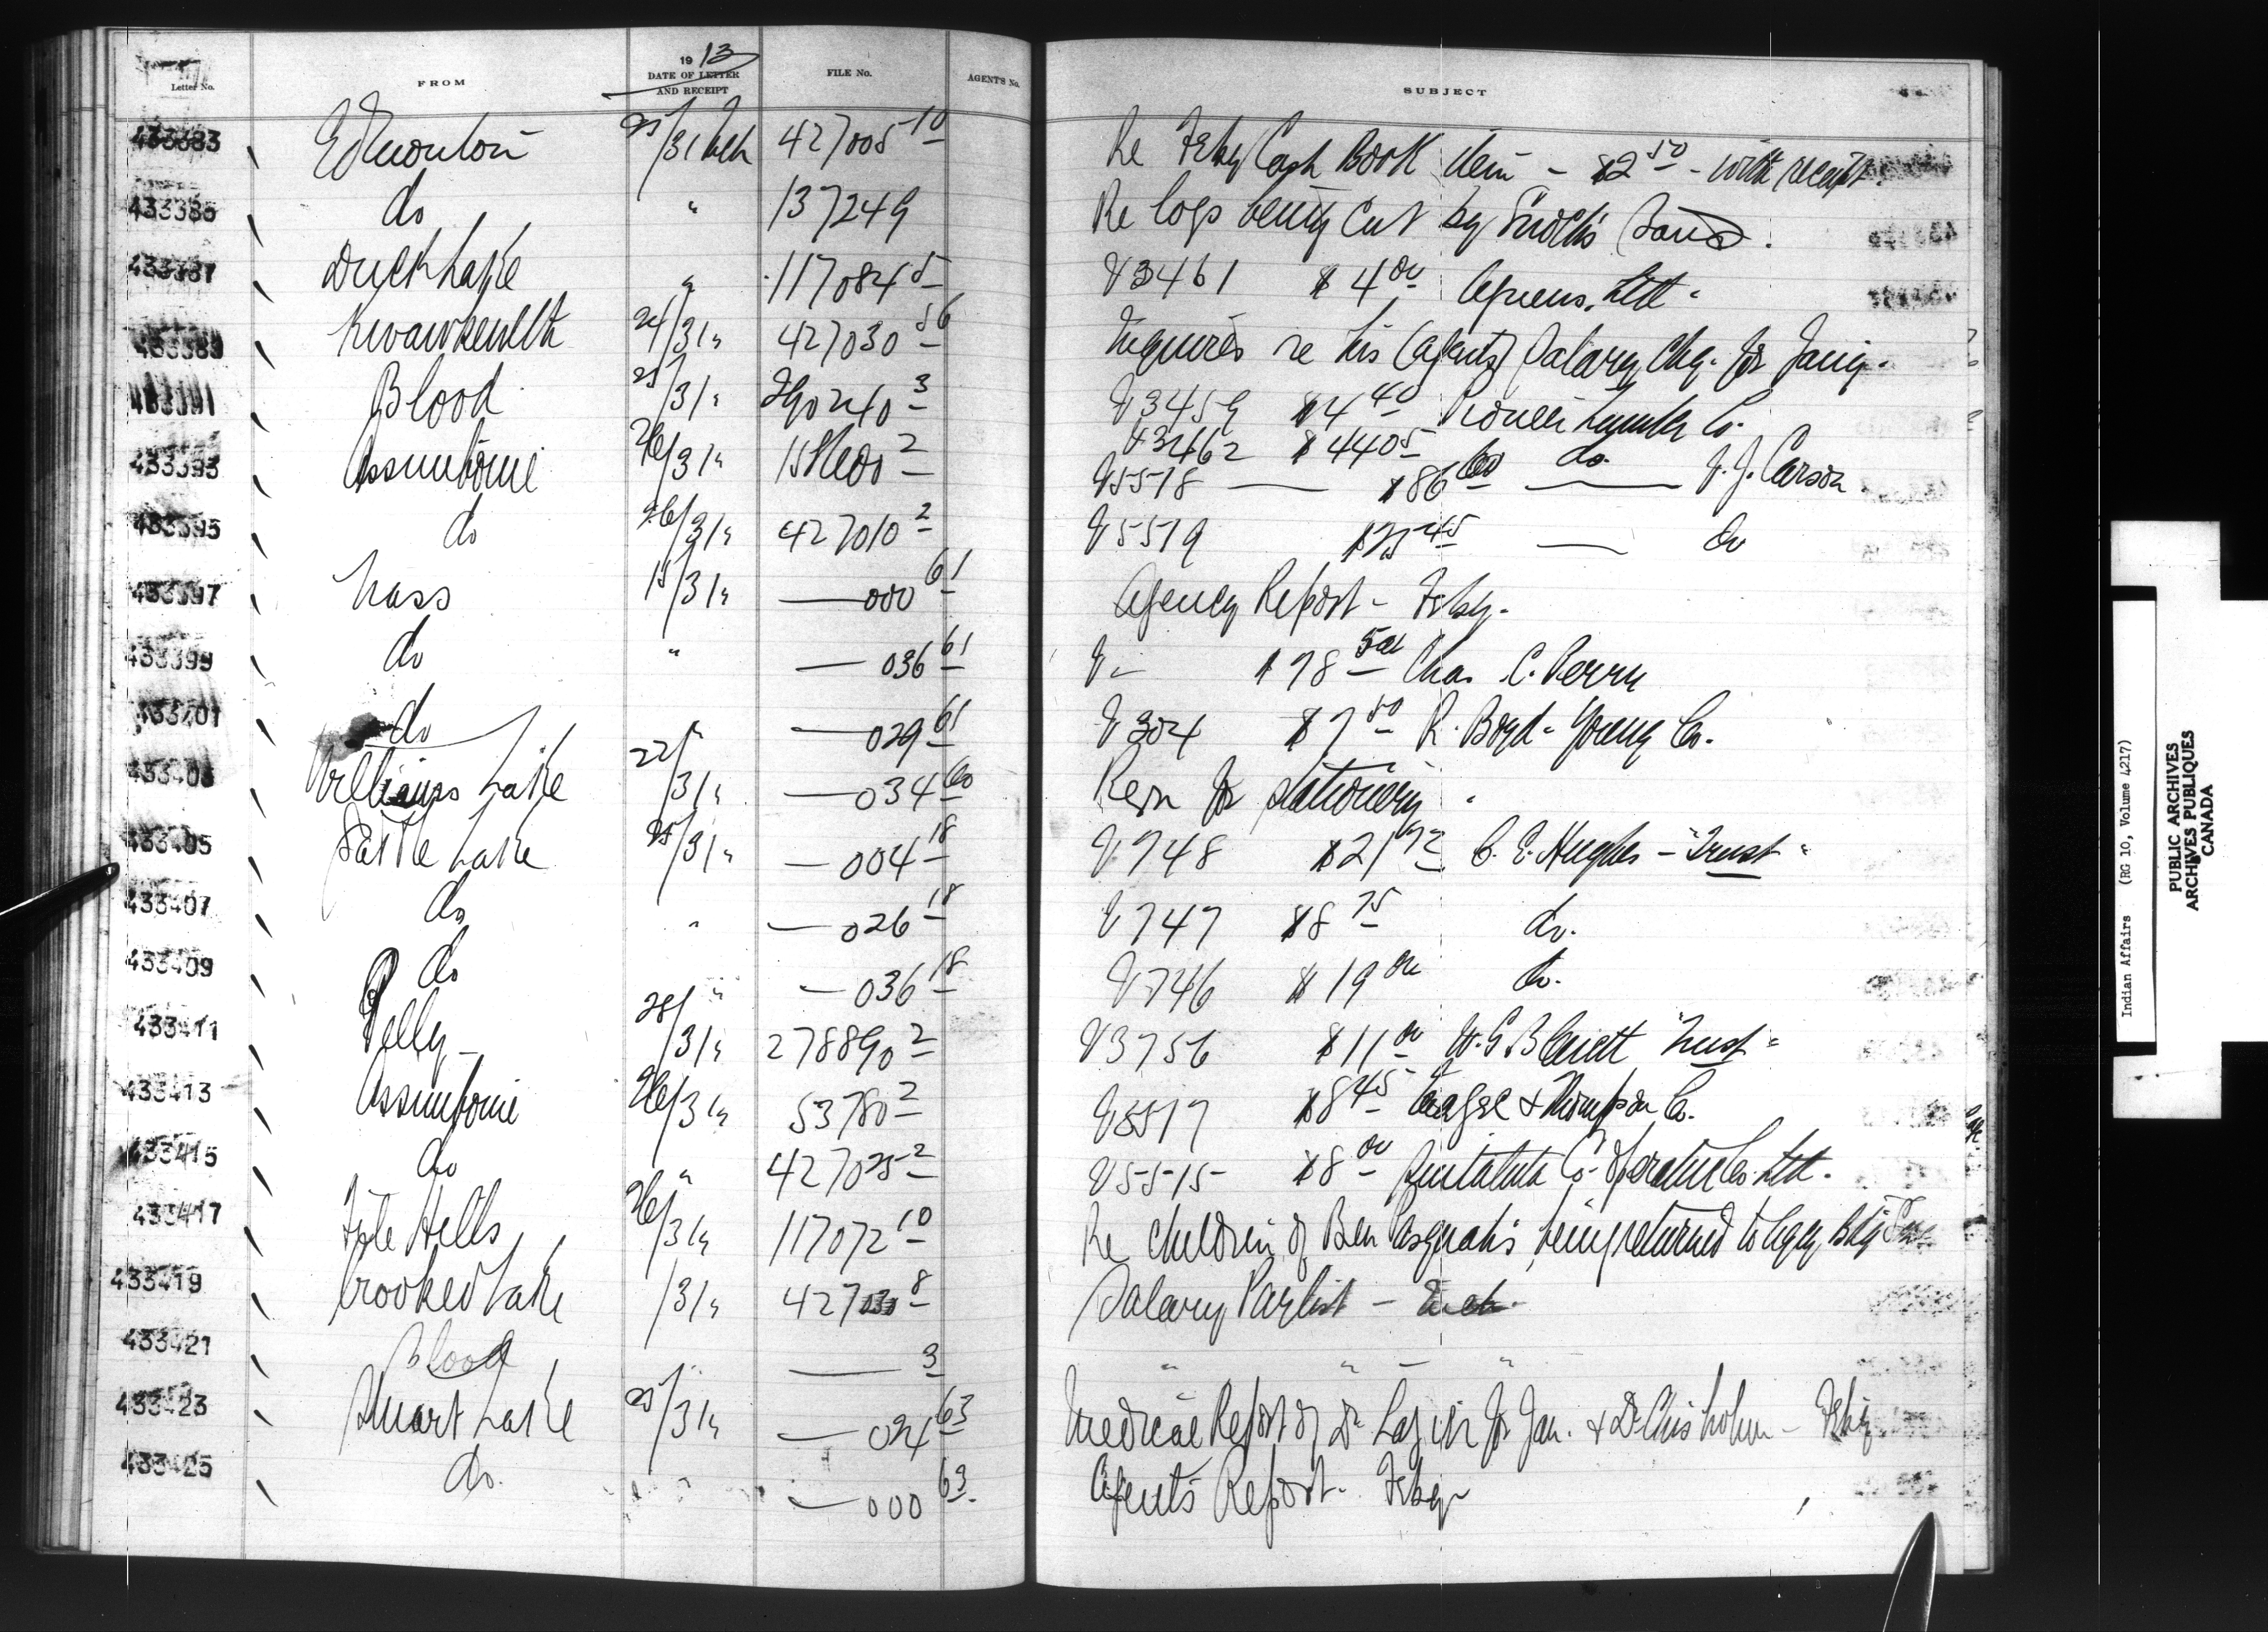 Letter No. FROM 1913 DATE OF LETTER AND RECEIPT FILE No. AGENT'S No. SUBJECT
433383 Edmonton 25/31 Mch 427005 10 Re Feby Cash Book item - $2 50 - with receipt.
433385 do " 137249 Re logs being cut by Enoch's Band.
433387 Duck Lake " 117084 5 V3461 $4 00 Ltd
433389 Kwawkewlth 24/31 " 427030 56 Inquires re his (agents) Salary Chq. for Jany.
433391 Blood 25/31 " 290240 3 V3459 $4 40 Pioneer Lumber Co.
V3462 $440 5 do.
433393 Assiniboine 26/31 " 2 V5518 — $86 60 — J. J. Carson
433395 do 26/31 " 427010 2 V5519 45 — do
433397 Nass 15/31 " — 000 61 Agency Report - Feby.
433399 do " — 036 61 V - $78 Chas. C. Perry
433401 do " — 029 61 V304 $7 50 R. Boyd-Young Co.
433403 Williams Lake 22/31 " — 034 60 Reqn for stationery.
433405 Saddle Lake 25/31 " — 004 18 V748 $21 72 C. E. Hughes - "Trust"
433407 do " — 026 18 V747 $8 75 do.
433409 do " — 036 18 V746 $19 00 do.
433411 Pelly 28/31 " 278890 2 V3756 $11 00 W. G. Blewett "Trust"
433413 Assiniboine 26/31 " 53780 2 V5517 $8 45 & Thompson Co.
433415 do " 427025 2 V5515 $8 00 Sintaluta Co-operative Co. Ltd.
433417 File Hills 26/31 " 117072 10 Re children of Ben Pasquah's being returned to Bdg
433419 Crooked Lake /31 " 427030 8 Salary Paylist - Mch.
433421 Blood — 3 " " - "
433423 Stuart Lake 25/31 " — 024 63 Medical Report of Dr. Lazier for Jan. & Dr Chisholm - Feby
433425 do. " — 000 63 Agent's Report - Feby
Indian Affairs (RG 10, Volume 4217)
PUBLIC ARCHIVES
ARCHIVES PUBLIQUES
CANADA